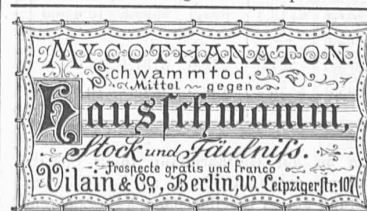 MYCOTHANATON
Schwammtod,
Mittel gegen
Hausschwamm,
Stock und Fäulniß.
Prospecte gratis und franco
Vilain & Co, Berlin, W. Leipzigerstr. 107